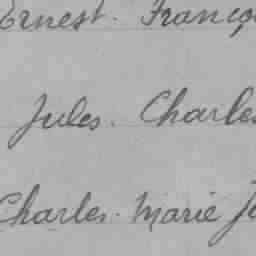 Ernest. Franço
Jules. Charles
Charles. Marie J